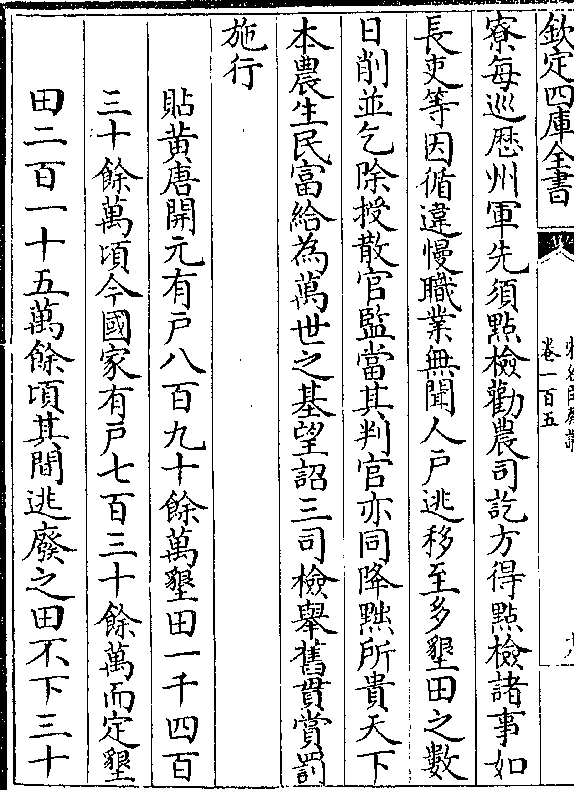 欽定四庫全書
卷一百五
寮每巡歷州軍先須點檢勸農司訖方得點檢諸事如
長吏等因循違慢職業無聞人户逃移至多墾田之數
日削並乞除授散官監當其判官亦同降黜所貴天下
本農生民富給為萬世之基望詔三司檢舉舊貫賞罰
施行
貼黄唐開元有户八百九十餘萬墾田一千四百
三十餘萬頃今國家有户七百三十餘萬而定墾
田二百一十五萬餘頃其間逃廢之田不下三十